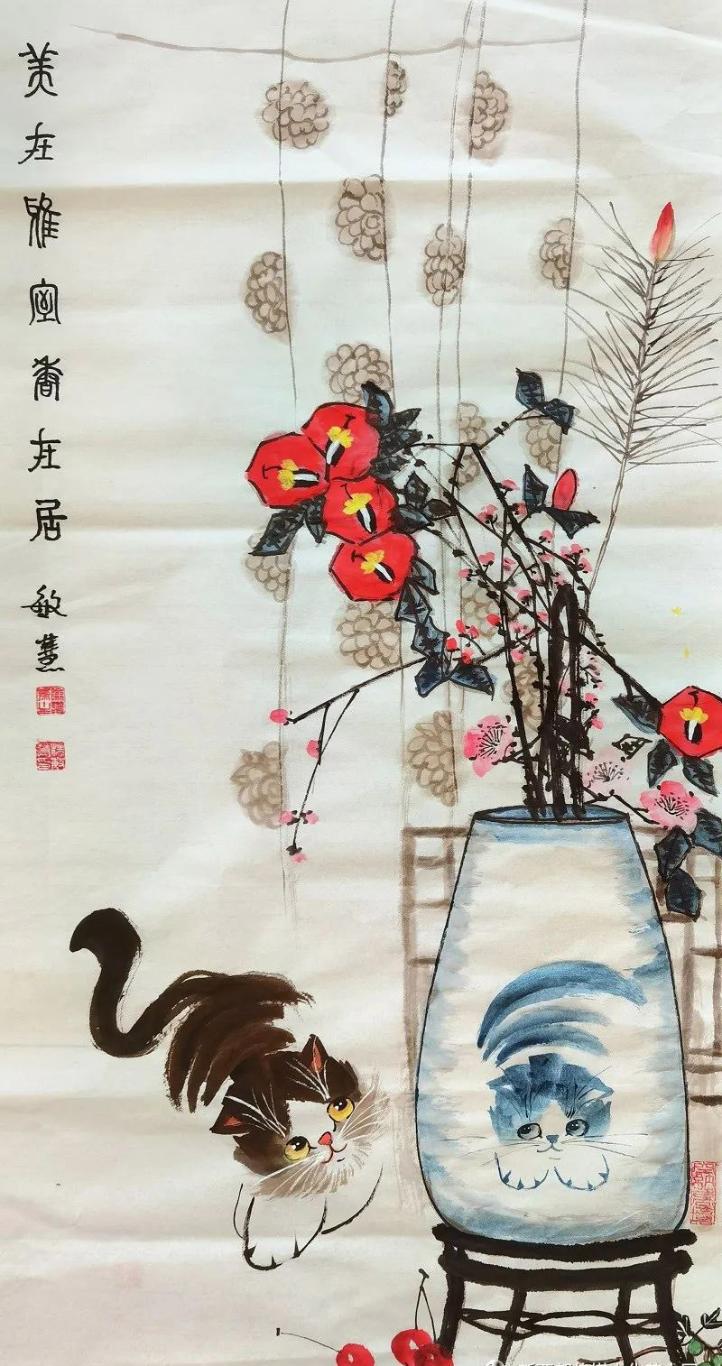 美在雅室香在居
敏慧